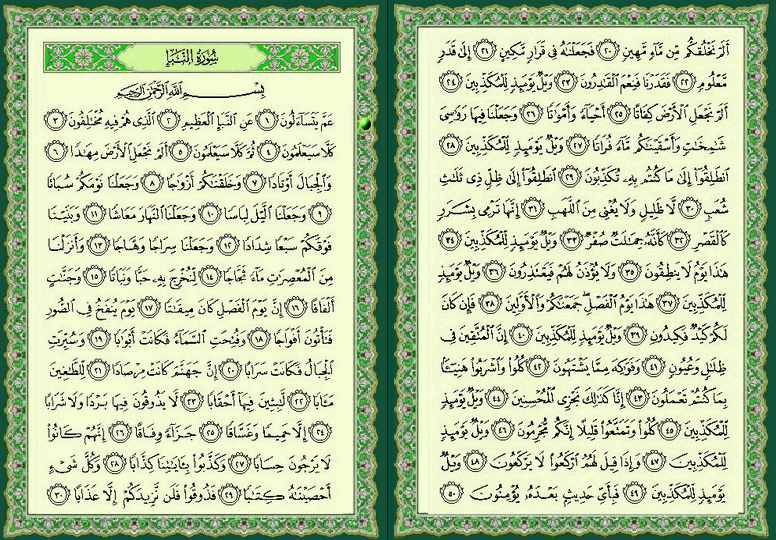 أَلَمْ نَخْلُقكُّم مِّن مَّآءٍ مَّهِينٍ ٢٠ فَجَعَلْنَٰهُ فِى قَرَارٍ مَّكِينٍ ٢١ إِلَىٰ قَدَرٍ
مَّعْلُومٍ ٢٢ فَقَدَرْنَا فَنِعْمَ ٱلْقَٰدِرُونَ ٢٣ وَيْلٌ يَوْمَئِذٍ لِّلْمُكَذِّبِينَ ٢٤
أَلَمْ نَجْعَلِ ٱلْأَرْضَ كِفَاتًا ٢٥ أَحْيَآءً وَأَمْوَٰتًا ٢٦ وَجَعَلْنَا فِيهَا رَوَٰسِىَ
شَٰمِخَٰتٍ وَأَسْقَيْنَٰكُم مَّآءً فُرَاتًا ٢٧ وَيْلٌ يَوْمَئِذٍ لِّلْمُكَذِّبِينَ ٢٨
ٱنطَلِقُوٓا۟ إِلَىٰ مَا كُنتُم بِهِۦ تُكَذِّبُونَ ٢٩ ٱنطَلِقُوٓا۟ إِلَىٰ ظِلٍّ ذِى ثَلَٰثِ
شُعَبٍ ٣٠ لَّا ظَلِيلٍ وَلَا يُغْنِى مِنَ ٱللَّهَبِ ٣١ إِنَّهَا تَرْمِى بِشَرَرٍ
كَٱلْقَصْرِ ٣٢ كَأَنَّهُۥ جِمَٰلَتٌ صُفْرٌ ٣٣ وَيْلٌ يَوْمَئِذٍ لِّلْمُكَذِّبِينَ ٣٤
هَٰذَا يَوْمُ لَا يَنطِقُونَ ٣٥ وَلَا يُؤْذَنُ لَهُمْ فَيَعْتَذِرُونَ ٣٦ وَيْلٌ يَوْمَئِذٍ
لِّلْمُكَذِّبِينَ ٣٧ هَٰذَا يَوْمُ ٱلْفَصْلِ ۖ جَمَعْنَٰكُمْ وَٱلْأَوَّلِينَ ٣٨ فَإِن كَانَ
لَكُمْ كَيْدٌ فَكِيدُونِ ٣٩ وَيْلٌ يَوْمَئِذٍ لِّلْمُكَذِّبِينَ ٤٠ إِنَّ ٱلْمُتَّقِينَ فِى
ظِلَٰلٍ وَعُيُونٍ ٤١ وَفَوَٰكِهَ مِمَّا يَشْتَهُونَ ٤٢ كُلُوا۟ وَٱشْرَبُوا۟ هَنِيٓـًٔۢا
بِمَا كُنتُمْ تَعْمَلُونَ ٤٣ إِنَّا كَذَٰلِكَ نَجْزِى ٱلْمُحْسِنِينَ ٤٤ وَيْلٌ يَوْمَئِذٍ
لِّلْمُكَذِّبِينَ ٤٥ كُلُوا۟ وَتَمَتَّعُوا۟ قَلِيلًا إِنَّكُم مُّجْرِمُونَ ٤٦ وَيْلٌ يَوْمَئِذٍ
لِّلْمُكَذِّبِينَ ٤٧ وَإِذَا قِيلَ لَهُمُ ٱرْكَعُوا۟ لَا يَرْكَعُونَ ٤٨ وَيْلٌ
يَوْمَئِذٍ لِّلْمُكَذِّبِينَ ٤٩ فَبِأَىِّ حَدِيثٍۭ بَعْدَهُۥ يُؤْمِنُونَ ٥٠
سُورَةُ النَّبَإِ
بِسْمِ ٱللَّهِ ٱلرَّحْمَٰنِ ٱلرَّحِيمِ
عَمَّ يَتَسَآءَلُونَ ١ عَنِ ٱلنَّبَإِ ٱلْعَظِيمِ ٢ ٱلَّذِى هُمْ فِيهِ مُخْتَلِفُونَ ٣
كَلَّا سَيَعْلَمُونَ ٤ ثُمَّ كَلَّا سَيَعْلَمُونَ ٥ أَلَمْ نَجْعَلِ ٱلْأَرْضَ مِهَٰدًا ٦
وَٱلْجِبَالَ أَوْتَادًا ٧ وَخَلَقْنَٰكُمْ أَزْوَٰجًا ٨ وَجَعَلْنَا نَوْمَكُمْ سُبَاتًا
٩ وَجَعَلْنَا ٱلَّيْلَ لِبَاسًا ١٠ وَجَعَلْنَا ٱلنَّهَارَ مَعَاشًا ١١ وَبَنَيْنَا
فَوْقَكُمْ سَبْعًا شِدَادًا ١٢ وَجَعَلْنَا سِرَاجًا وَهَّاجًا ١٣ وَأَنزَلْنَا
مِنَ ٱلْمُعْصِرَٰتِ مَآءً ثَجَّاجًا ١٤ لِّنُخْرِجَ بِهِۦ حَبًّا وَنَبَاتًا ١٥ وَجَنَّٰتٍ
أَلْفَافًا ١٦ إِنَّ يَوْمَ ٱلْفَصْلِ كَانَ مِيقَٰتًا ١٧ يَوْمَ يُنفَخُ فِى ٱلصُّورِ
فَتَأْتُونَ أَفْوَاجًا ١٨ وَفُتِحَتِ ٱلسَّمَآءُ فَكَانَتْ أَبْوَٰبًا ١٩ وَسُيِّرَتِ
ٱلْجِبَالُ فَكَانَتْ سَرَابًا ٢٠ إِنَّ جَهَنَّمَ كَانَتْ مِرْصَادًا ٢١ لِّلطَّٰغِينَ
مَـَٔابًا ٢٢ لَّٰبِثِينَ فِيهَآ أَحْقَابًا ٢٣ لَّا يَذُوقُونَ فِيهَا بَرْدًا وَلَا شَرَابًا
٢٤ إِلَّا حَمِيمًا وَغَسَّاقًا ٢٥ جَزَآءً وِفَاقًا ٢٦ إِنَّهُمْ كَانُوا۟
لَا يَرْجُونَ حِسَابًا ٢٧ وَكَذَّبُوا۟ بِـَٔايَٰتِنَا كِذَّابًا ٢٨ وَكُلَّ شَىْءٍ
أَحْصَيْنَٰهُ كِتَٰبًا ٢٩ فَذُوقُوا۟ فَلَن نَّزِيدَكُمْ إِلَّا عَذَابًا ٣٠